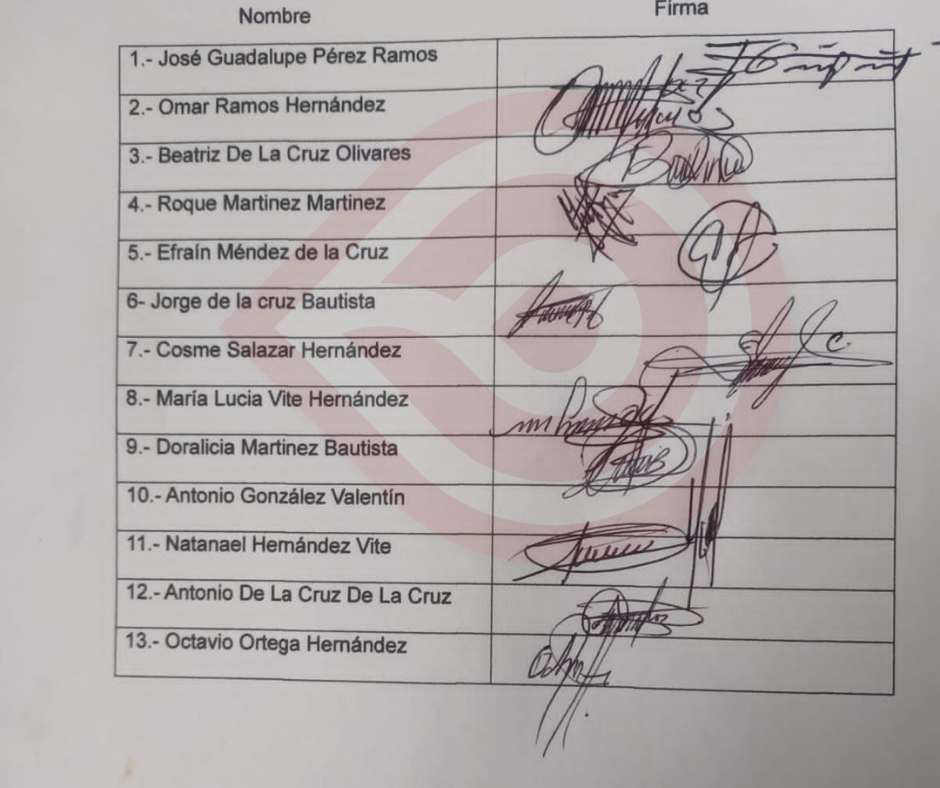 Nombre Firma
1.- José Guadalupe Pérez Ramos
2.- Omar Ramos Hernández
3.- Beatriz De La Cruz Olivares
4.- Roque Martinez Martinez
5.- Efraín Méndez de la Cruz
6- Jorge de la cruz Bautista
7.- Cosme Salazar Hernández
8.- María Lucia Vite Hernández
9.- Doralicia Martinez Bautista
10.- Antonio González Valentín
11.- Natanael Hernández Vite
12.- Antonio De La Cruz De La Cruz
13.- Octavio Ortega Hernández